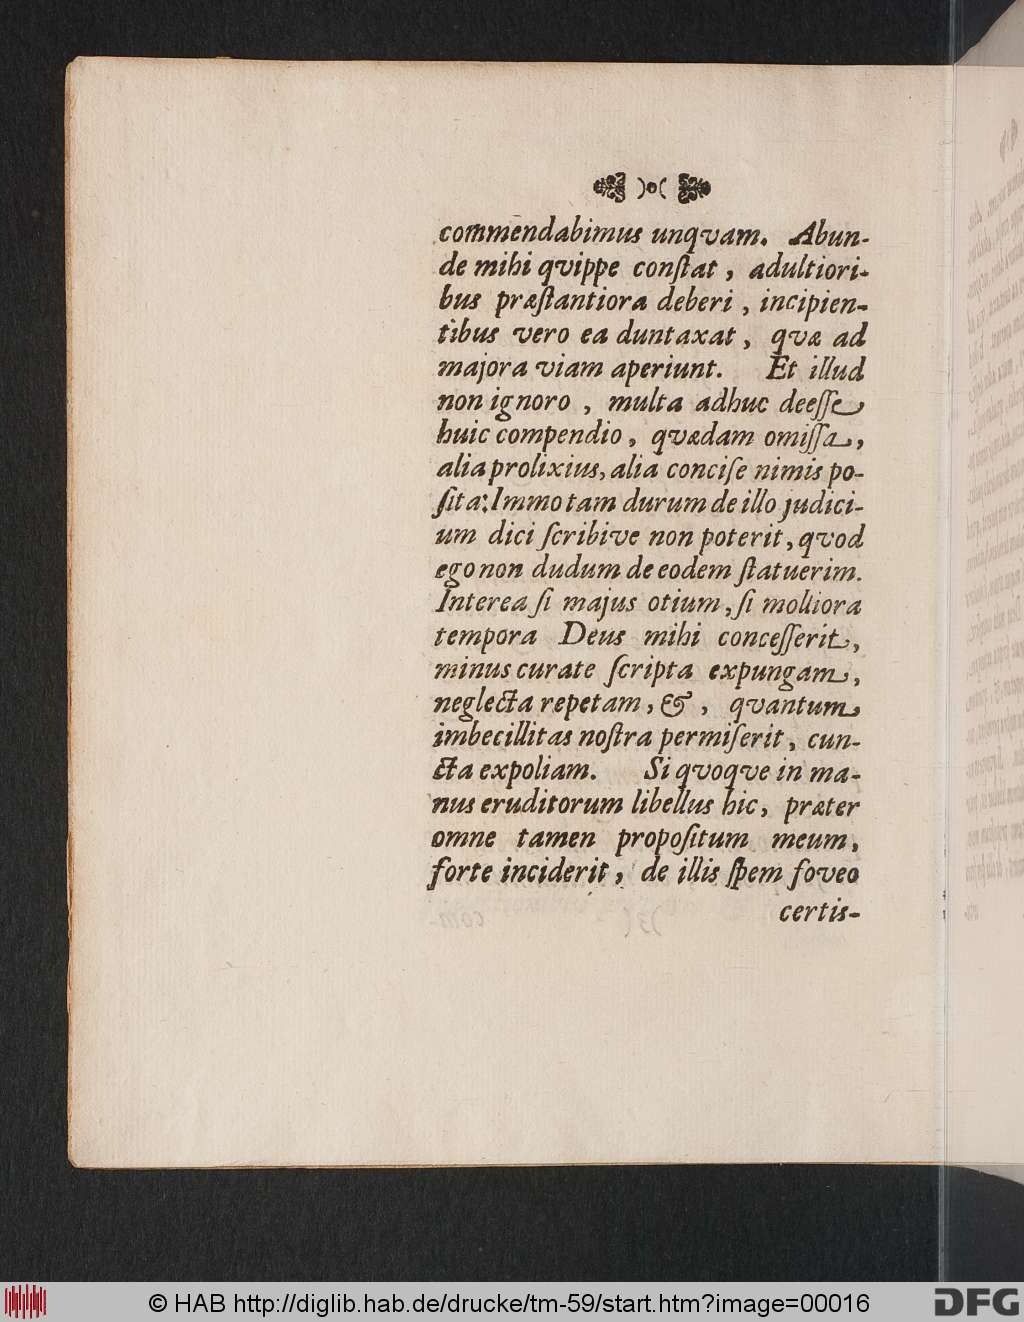 commendabimus unqvam. Abun-
de mihi qvippe conſtat, adultiori-
bus præſtantiora deberi, incipien-
tibus vero ea duntaxat, qvæ ad
majora viam aperiunt. Et illud
non ignoro, multa adhuc deeſſe
huic compendio, qvædam omiſſa,
alia prolixius, alia conciſe nimis po-
ſita: Immo tam durum de illo judici-
um dici ſcribive non poterit, qvod
ego non dudum de eodem ſtatuerim.
Interea ſi majus otium, ſi molliora
tempora Deus mihi conceſſerit,
minus curate ſcripta expungam,
neglecta repetam, &, qvantum
imbecillitas noſtra permiſerit, cun-
cta expoliam. Si qvoqve in ma-
nus eruditorum libellus hic, præter
omne tamen propoſitum meum,
forte inciderit, de illis ſpem foveo
certis-
© HAB http://diglib.hab.de/drucke/tm-59/start.htm?image=00016
DFG